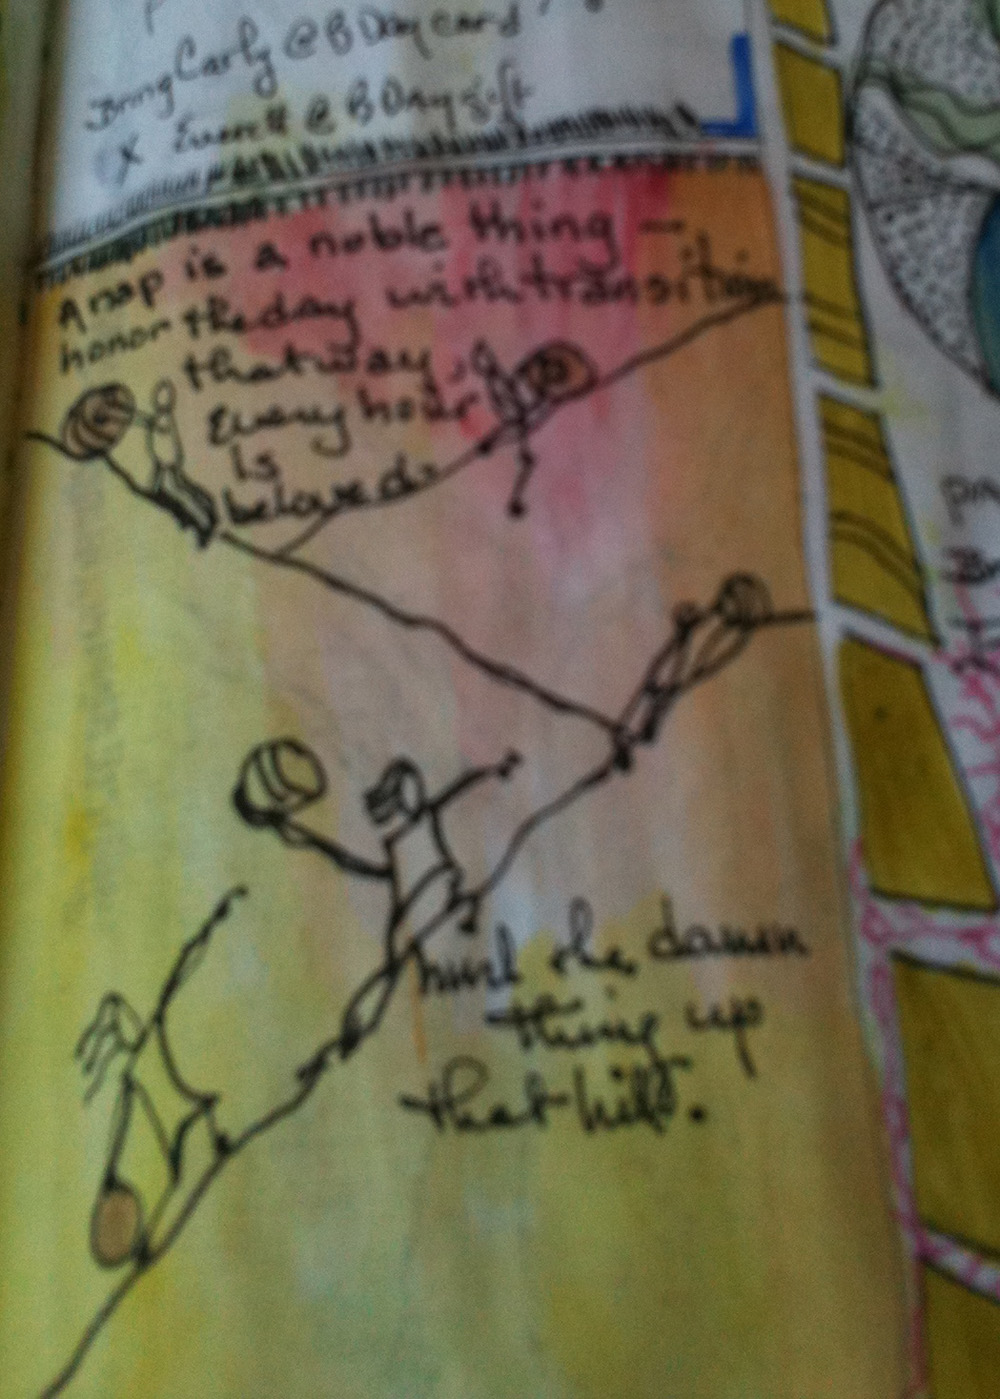 Bring Carly @ B Day card
X Everett @ B Day gift
A nap is a noble thing —
honor the day with transition
that way.
Every hour
is
beloved.
hurl the damn
thing up
that hill.
Br